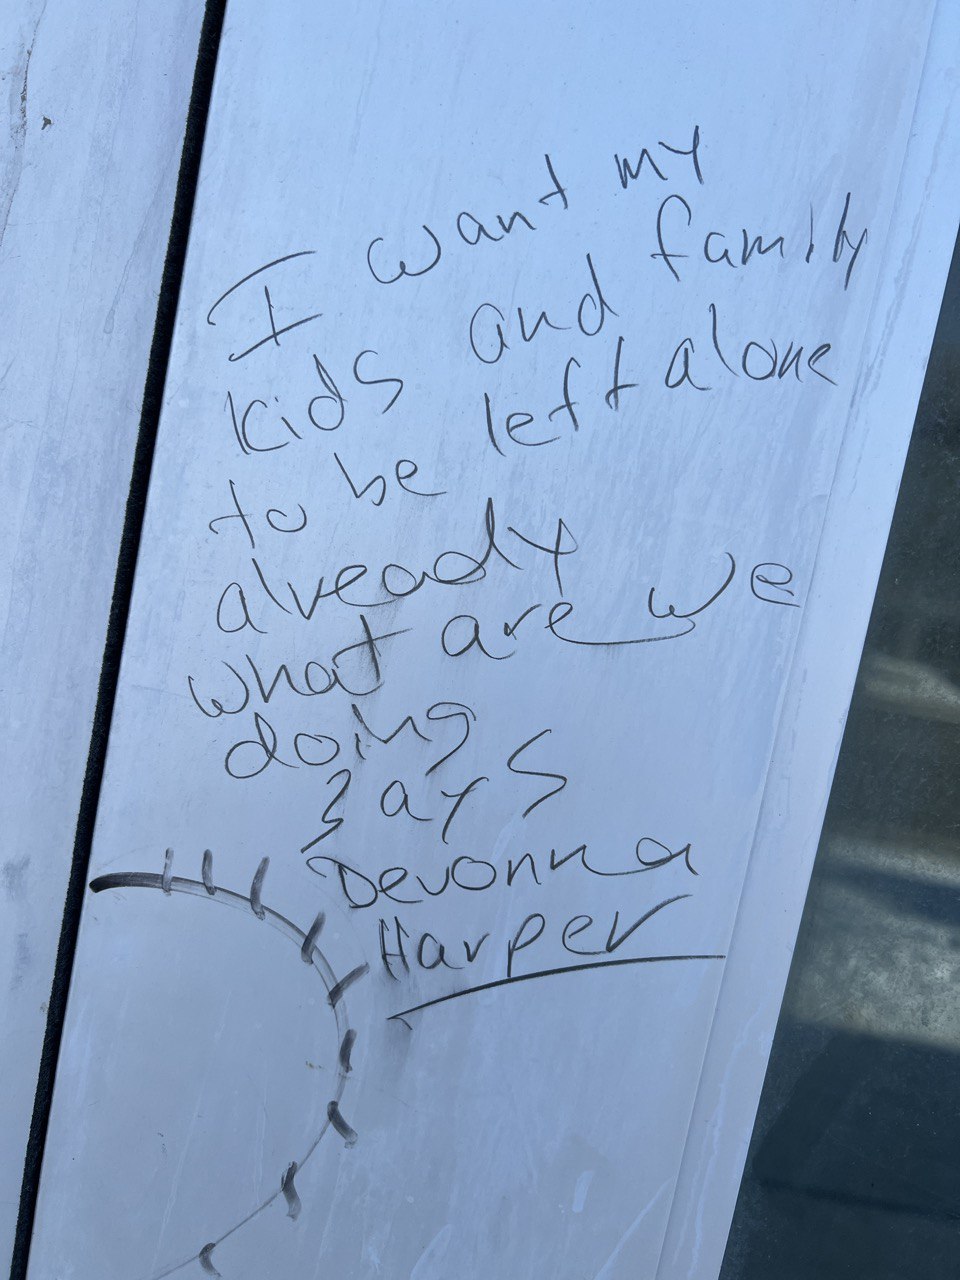 I want my
kids and family
to be left alone
already
what are we
doing
says
Devonna
Harper